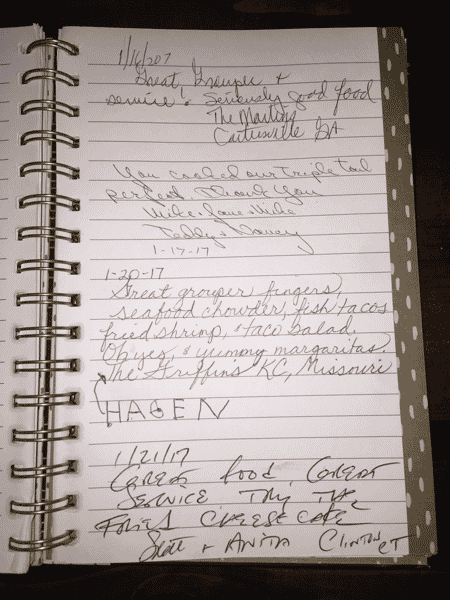 1/16/207
Great Grouper +
service! Seriously good food
The Martins
Cartersville GA
You cooked our triple tail
perfect. Thank You
Mike + Jane + Mike
Teddy +
1-17-17
1-20-17
Great grouper fingers,
seafood chowder, fish tacos
fried shrimp, + taco salad.
Oh yes, + yummy margaritas
The Griffins KC, Missouri
HAGEN
1/21/17
GREAT food, GREAT
SERVICE TRY THE
CHEESE CAKE
Scott + ANITA CLINTON CT